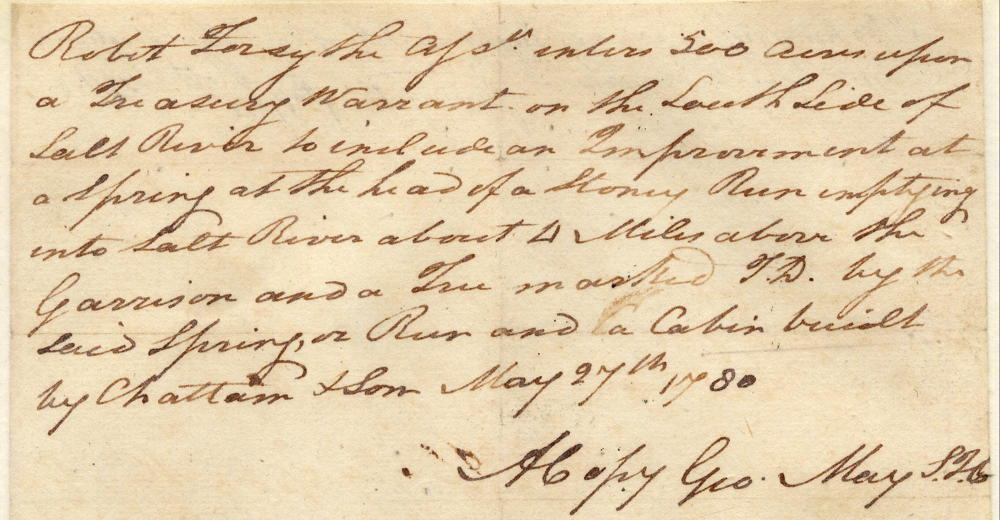 Robert Forsythe Ass.ee enters 500 Acres upon
a Treasury Warrant on the South Side of
Salt River to include an Improvement at
a Spring at the head of a Stoney Run emptying
into Salt River about 4 Miles above the
Garrison and a Tree marked T.D. by the
said Spring, or Run and a Cabin built
by Chattam & Son May 27th 1780
A Copy Geo. May